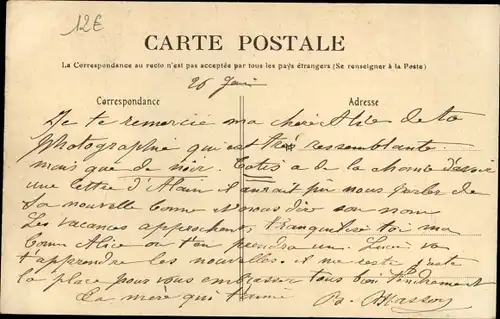 12€
CARTE POSTALE
La Correspondance au recto n'est pas acceptée par tous les pays étrangers (Se renseigner à la Poste)
26 Juin
Correspondance
Adresse
Je te remercie ma chère Alice de ta
Photographie qu'est très ressemblante
mais que de noir. a de la chance d'avoir
une lettre d'Alain il aurait pu nous parler de
sa nouvelle bonne nous dire son nom
Les vacances approchent, tranquilise toi ma
bonne Alice on t'en prendra un. va
t'apprendre les nouvelles. il me reste juste
la place pour vous embrasser tous bien tendrement
La mère qui t'aime B. Masson